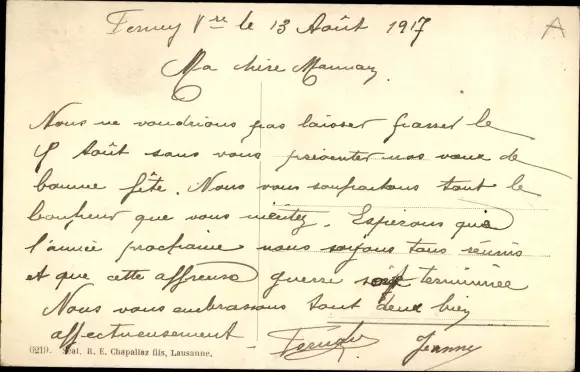 Ferney Vre le 13 Août 1917
A
Ma chère Maman,
Nous ne voudrions pas laisser passer le
Août sans vous présenter nos vœux de
bonne fête. Nous vous souhaitons tout le
bonheur que vous méritez. Espérons que
l'année prochaine nous soyons tous réunis
et que cette affreuse guerre soit terminée
Nous vous embrassons tout deux bien
affectueusement
Jeanne
6219. Scal. R. E. Chapallaz fils, Lausanne.